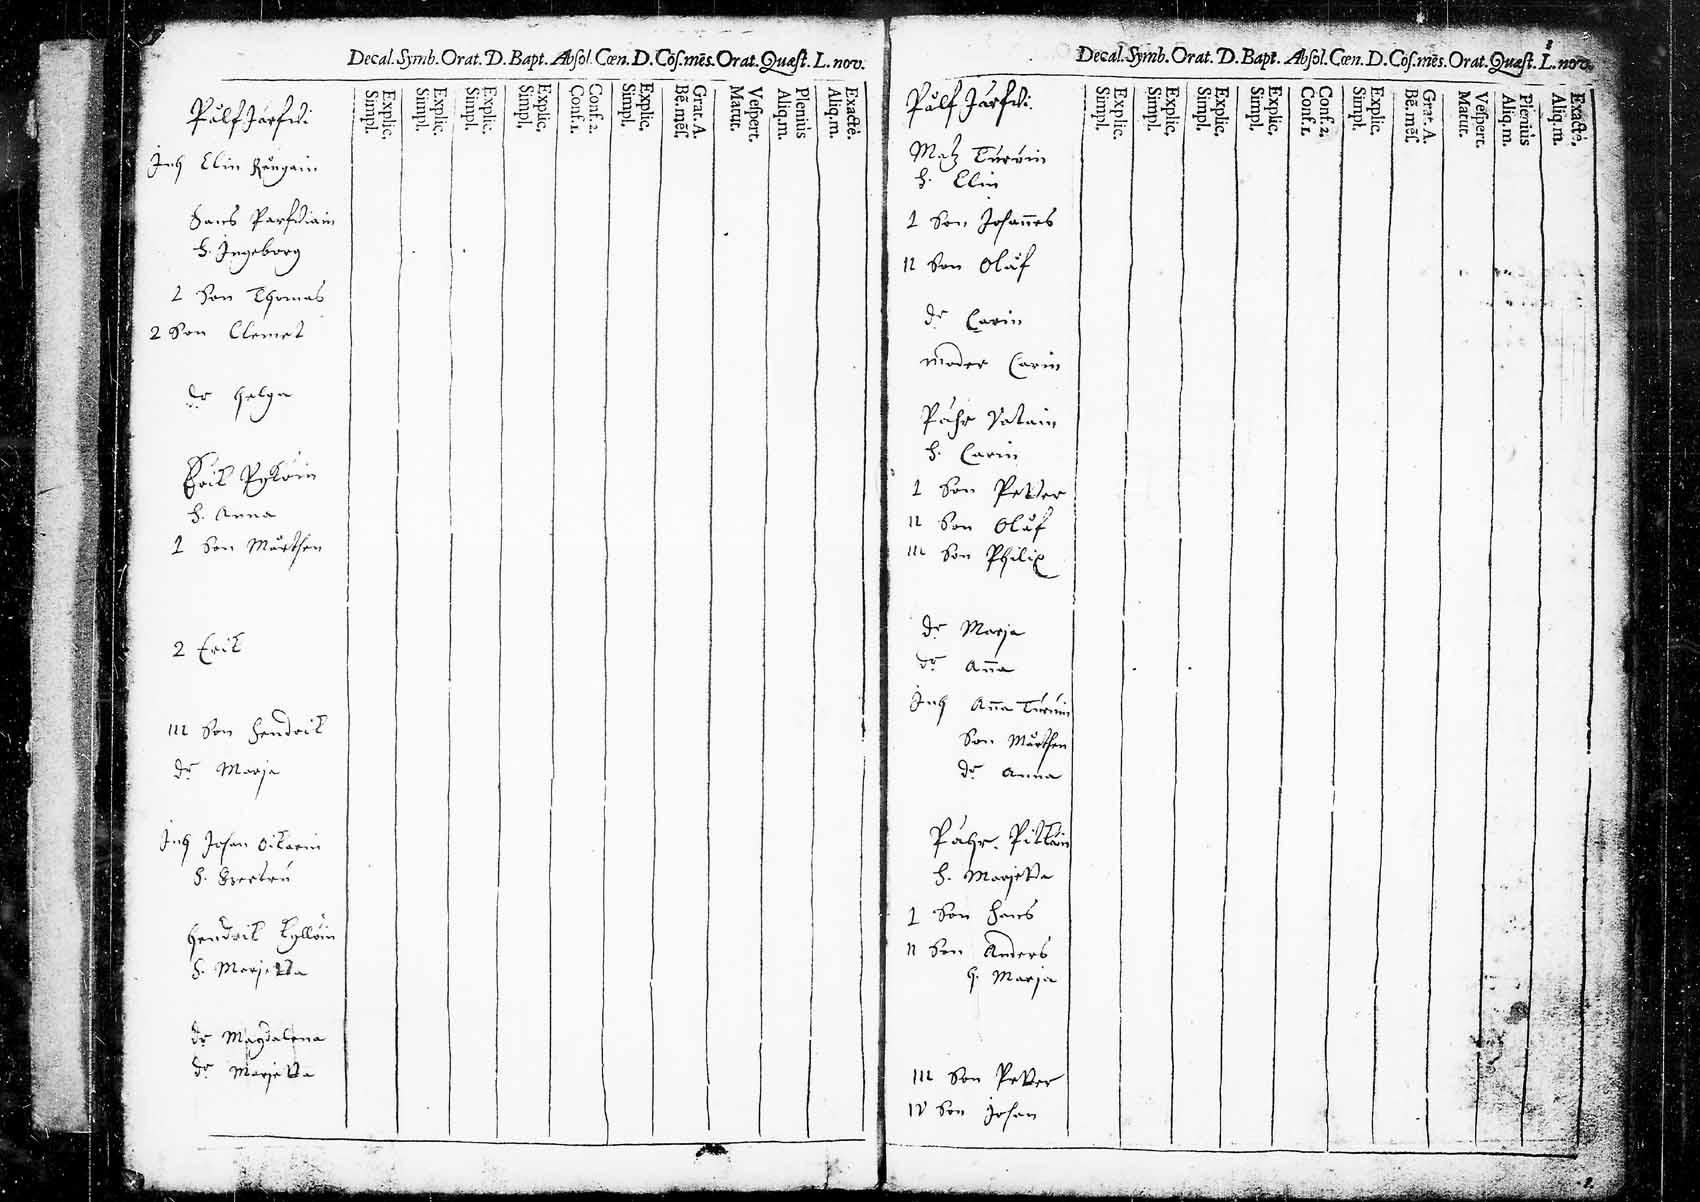 Decal. Symb. Orat. D. Bapt. Absol. Cœn. D. Cōs. mēs. Orat. Quæst. L. nov.
Explic. Simpl.
Explic. Simpl.
Explic. Simpl.
Explic. Simpl.
Conf. 2. Conf. 1.
Explic. Simpl.
Grat. A. Bē. mēs.
Vespert. Matut.
Pleniùs Aliq. m.
Exactè. Aliq. m.
Pålf Järfwi
Inh Elin
Hans Parfwiain
h. Ingeborg
1 Son Thomas
2 Son Clemet
dr Helga
Erik Pyköin
h. Anna
1 Son Mårthen
2 Erik
III Son Hendrik
dr Marja
Inh Johan Oikarin
h. Gertru
Hendrik Kyllöin
h. Marjetta
dr Magdalena
dr Marjetta
Decal. Symb. Orat. D. Bapt. Absol. Cœn. D. Cōs. mēs. Orat. Quæst. L. nov.
Explic. Simpl.
Explic. Simpl.
Explic. Simpl.
Explic. Simpl.
Conf. 2. Conf. 1.
Explic. Simpl.
Grat. A. Bē. mēs.
Vespert. Matut.
Pleniùs Aliq. m.
Exactè. Aliq. m.
Pålf Järfwi.
Matz Turuin
h. Elin
1 Son Johannes
II Son Olåf
dr Carin
moder Carin
Påhr Vatain
h. Carin
1 Son Petter
II Son Olåf
III Son Philip
dr Marja
dr Anna
Inh Anna Turuin
Son Mårthen
dr Anna
Påhr. Pitkäin
h. Marjetta
1 Son Hans
II Son Anders
h. Marja
III Son Petter
IV Son Johan